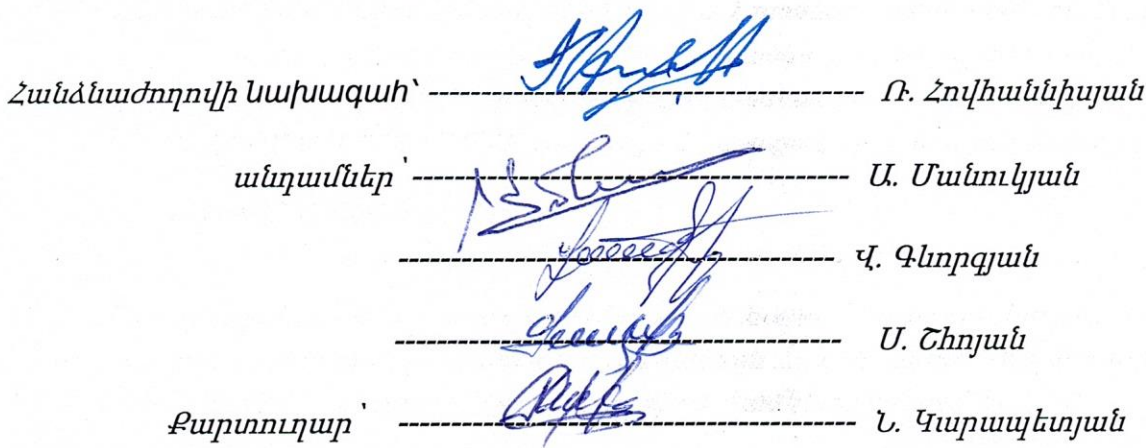 Հանձնաժողովի նախագահ՝ ---------------------------------------- Ռ. Հովհաննիսյան
անդամներ՝ ---------------------------------------- Ա. Մանուկյան
---------------------------------------- Վ. Գևորգյան
---------------------------------------- Ս. Շիոյան
Քարտուղար՝ ---------------------------------------- Ն. Կարապետյան